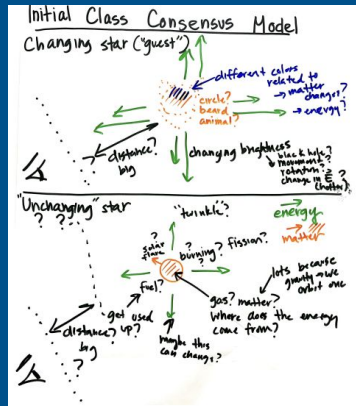 Initial Class Consensus Model
Changing star ("guest")
different colors
related to
→ matter
changes?
→ energy?
circle?
beard
animal?
distance?
big
changing brightness
black hole?
movement?
rotation?
change in E?
(hotter)
"Unchanging" star
? ? ?
"twinkle"?
energy
matter
?
solar
flare
?
burning?
fission?
fuel?
get used
up?
distance?
big
?
maybe this
can change?
gas? matter?
Where does the energy
come from?
lots because
gravity → we
orbit one